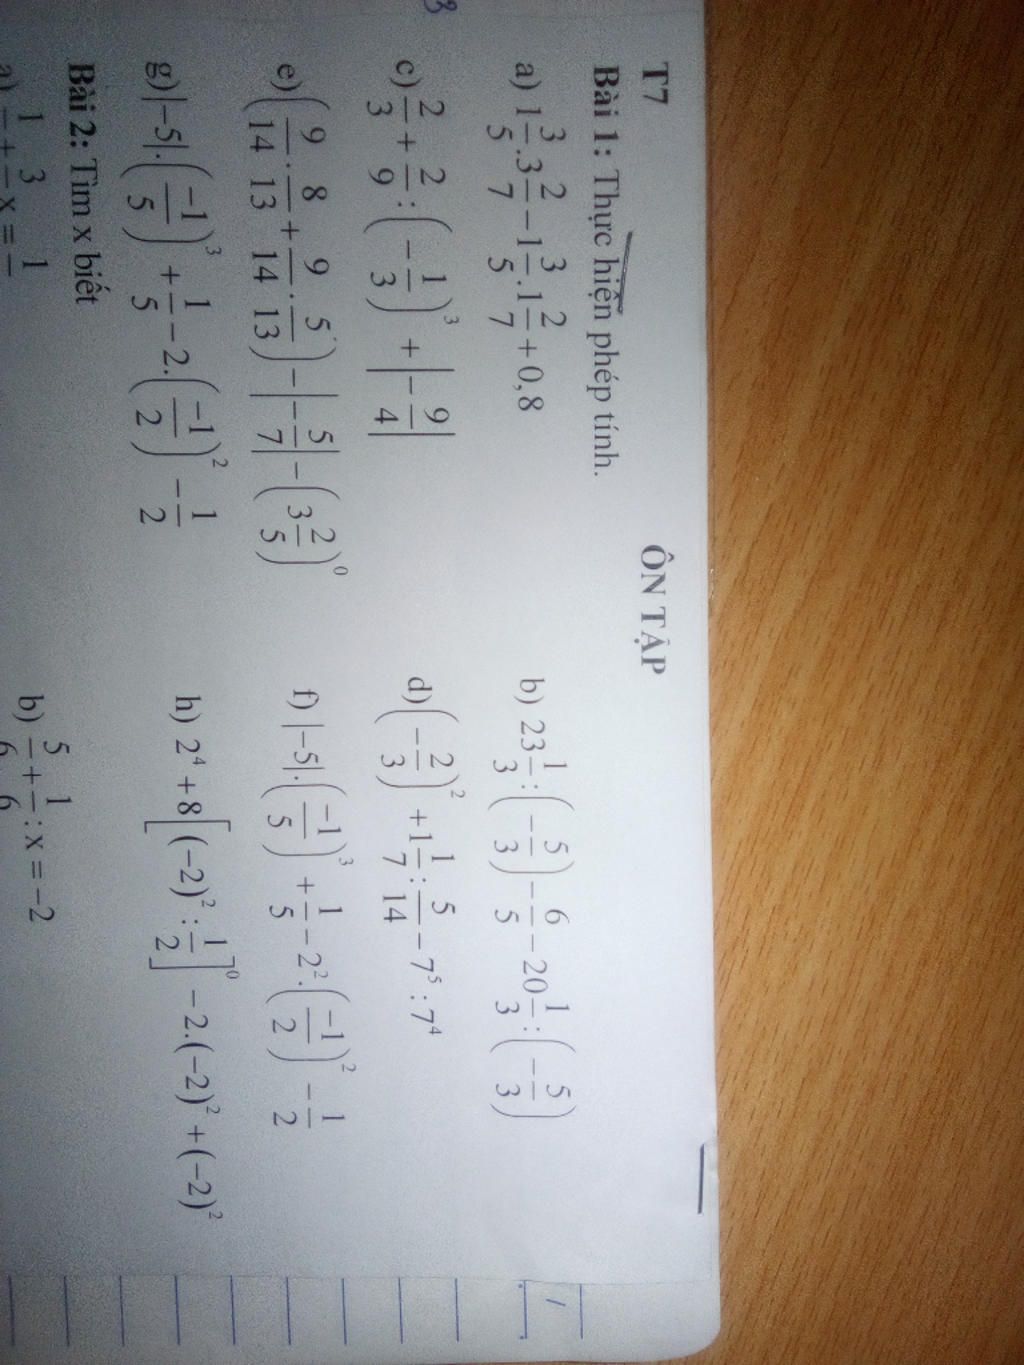 T7
ÔN TẬP
Bài 1: Thực hiện phép tính.
a) 1 3/5 . 3 2/7 − 1 3/5 . 1 2/7 + 0,8
b) 23 1/3 : (−5/3) − 6/5 − 20 1/3 : (−5/3)
c) 2/3 + 2/9 : (−1/3)³ + |−9/4|
d) (−2/3)² + 1 1/7 : 5/14 − 7⁵ : 7⁴
e) (9/14 . 8/13 + 9/14 . 5/13) − |−5/7| − (3 2/5)⁰
f) |−5| . (−1/5)³ + 1/5 − 2² . (−1/2)² − 1/2
g) |−5| . (−1/5)³ + 1/5 − 2 . (−1/2)² − 1/2
h) 2⁴ + 8[(−2)² : 1/2]⁰ − 2.(−2)² + (−2)²
Bài 2: Tìm x biết
b) 5/6 + 1/6 : x = −2